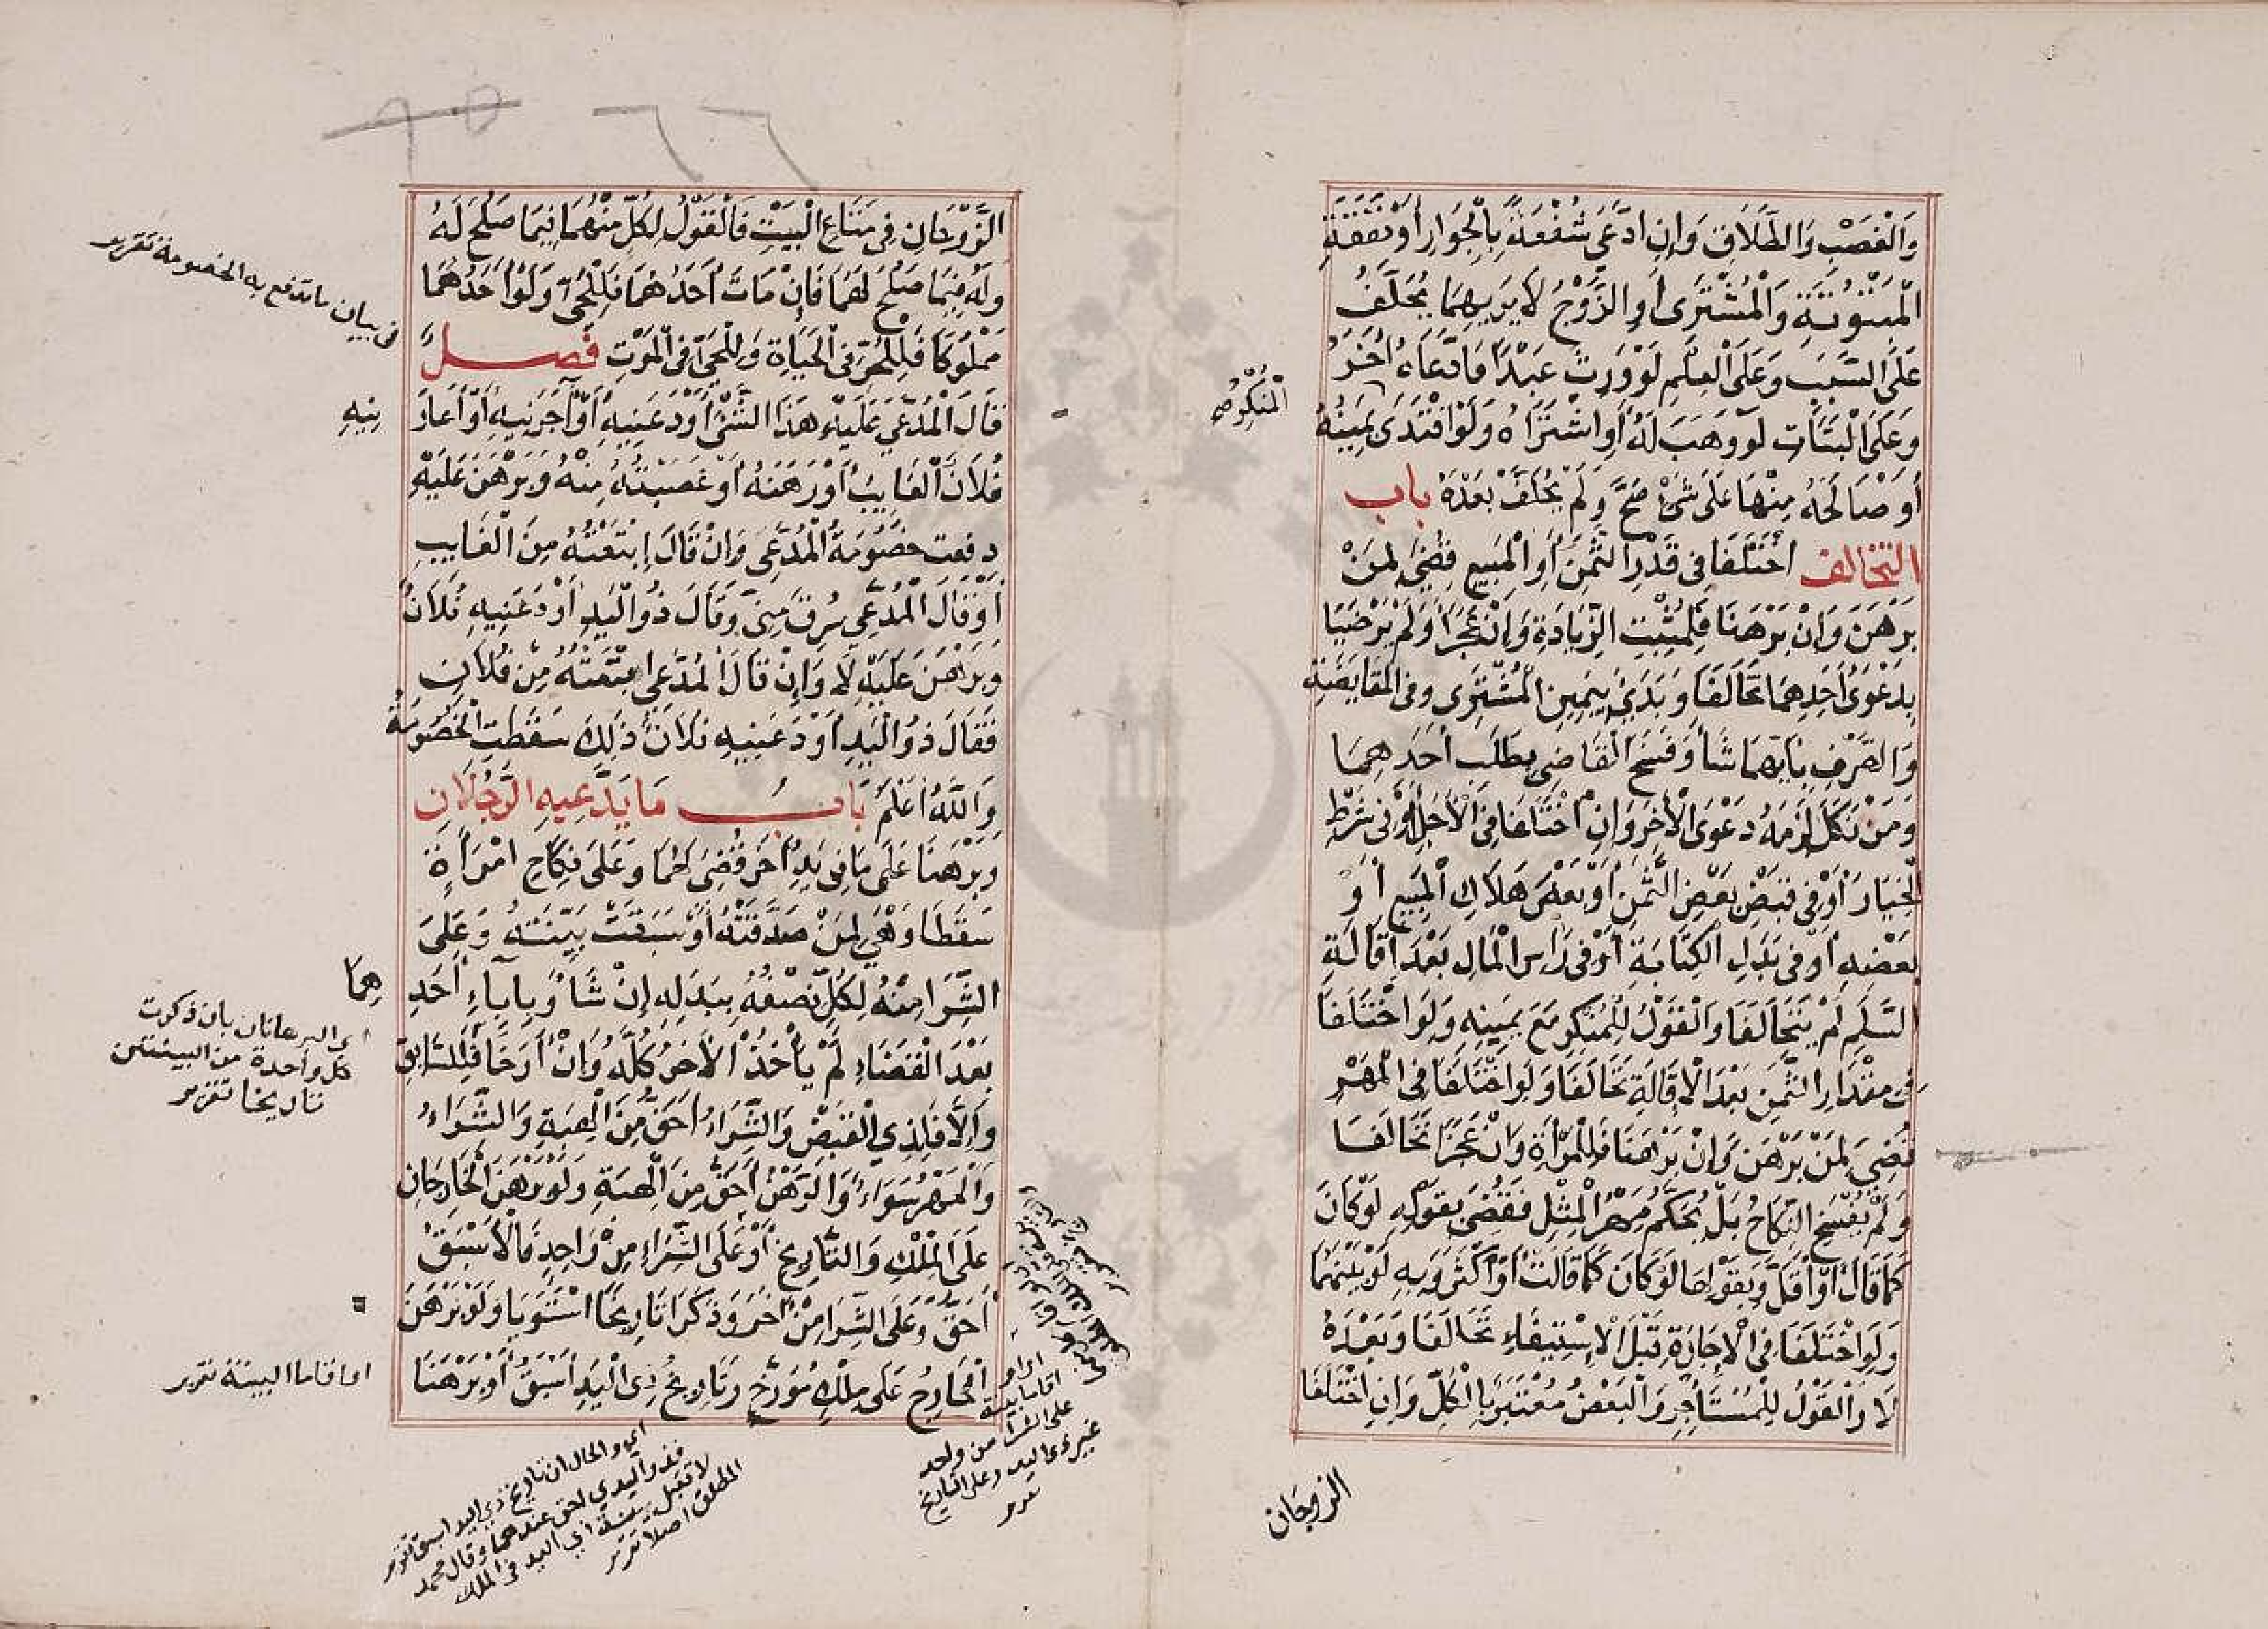 وَالْغَصْبِ وَالطَّلَاقِ وَاِنِ ادَّعَى شُفْعَةً بِالْجِوَارِ أَوْ نَفَقَةِ
الْمَبْتُوتَةِ وَالْمُشْتَرِى أَوِ الزَّوْجُ لَا يَرَيهِمَا يُحَلَّفُ
عَلَى السَّبَبِ وَعَلَى الْعِلْمِ لَوْ وَرِثَ عَبْدًا فَادَّعَاهُ اٰخَرُ
وَعَلَى الْبَتَاتِ لَوْ وَهَبَ لَهُ أَوِ اشْتَرَاهُ وَلَوِ افْتَدَى يَمِينَهُ
الْمُنْكِرُ صح
أَوْ صَالَحَهُ مِنْهَا عَلَى شَىْءٍ صَحَّ وَلَمْ يُحَلَّفْ بَعْدَهُ باب
التخالف اخْتَلَفَا فِى قَدْرِ الثَّمَنِ أَوِ الْمَبِيعِ قُضِىَ لِمَنْ
بَرْهَنَ وَاِنْ بَرْهَنَا فَلِمُثْبِتِ الزِّيَادَةِ وَاِنْ عَجَزَا وَلَمْ يَرْضَيَا
بِدَعْوَى أَحَدِهِمَا تَحَالَفَا وَبُدِئَ بِيَمِينِ الْمُشْتَرِى وَفِى الْمُقَايَضَةِ
وَالصَّرْفِ بِأَيِّهِمَا شَأ وَفَسَخَ الْقَاضِى بِطَلَبِ أَحَدِهِمَا
وَمَنْ نَكَلَ لَزِمَهُ دَعْوَى الْاٰخَرِ وَاِنِ اخْتَلَفَا فِى الْأَجَلِ أَوْ فِى شَرْطِ
الْخِيَارِ أَوْ فِى قَبْضِ بَعْضِ الثَّمَنِ أَوْ بَعْضَ هَلَاكِ الْمَبِيعِ أَوْ
بَعْضِهِ أَوْ فِى بَدَلِ الْكِتَابَةِ أَوْ فِى رَأسِ الْمَالِ بَعْدَ إِقَالَةِ
السَّلَمِ لَمْ يَتَحَالَفَا وَالْقَوْلُ لِلْمُنْكِرِ مَعَ يَمِينِهِ وَلَوِ اخْتَلَفَا
فِى مِقْدَارِ الثَّمَنِ بَعْدَ الْاِقَالَةِ تَحَالَفَا وَلَوِ اخْتَلَفَا فِى الْمَهْرِ
قُضِىَ لِمَنْ بَرْهَنَ وَاِنْ بَرْهَنَا فَلِلْمَرْأَةِ وَاِنْ عَجَزَا تَحَالَفَا
وَلَمْ يُفْسَخِ النِّكَاحُ بَلْ يُحَكَّمُ مَهْرُ الْمِثْلِ فَقُضِىَ بِقَوْلِهِ لَوْ كَانَ
كَمَا قَالَ أَوْ أَقَلَّ وَبِقَوْلِهَا لَوْ كَانَ كَمَا قَالَتْ أَوْ أَكْثَرَ وَبِهِ لَوْ بَيْنَهُمَا
وَلَوِ اخْتَلَفَا فِى الْاِجَارَةِ قَبْلَ الْاِسْتِيفَاءِ تَحَالَفَا وَبَعْدَهُ
لَا وَالْقَوْلُ لِلْمُسْتَأْجِرِ وَالْبَعْضُ مُعْتَبَرٌ بِالْكُلِّ وَاِنِ اخْتَلَفَا
الزوجان
٦٦
الزَّوْجَانِ فِى مَتَاعِ الْبَيْتِ فَالْقَوْلُ لِكُلٍّ مِنْهُمَا فِيمَا صَلُحَ لَهُ
وَلَهُ فِيمَا صَلُحَ لَهُمَا فَاِنْ مَاتَ أَحَدُهُمَا فَلِلْحَىِّ وَلَوْ أَحَدُهُمَا
مَمْلُوكًا فَلِلْحُرِّ فِى الْحَيَاةِ وَلِلْحَىِّ فِى الْمَوْتِ فَصْلٌ
فى بيان ما تدفع به الخصومة تقرير
قَالَ الْمُدَّعَى عَلَيْهِ هَذَا الشَّىْءُ أَوْدَعَنِيهِ أَوْ آجَرَنِيهِ أَوْ أَعَارَ
نِيهِ
فُلَانٌ الْغَايِبُ أَوْ رَهَنَهُ أَوْ غَصَبْتُهُ مِنْهُ وَبَرْهَنَ عَلَيْهِ
دفعت خُصُومَةُ الْمُدَّعِى وَاِنْ قَالَ اِبْتَعْتُهُ مِنَ الْغَايِبِ
أَوْ قَالَ الْمُدَّعِى سُرِقَ مِنِّى وَقَالَ ذُو الْيَدِ أَوْدَعَنِيهِ فُلَانٌ
وَبَرْهَنَ عَلَيْهِ لَا وَاِنْ قَالَ الْمُدَّعِى ابْتَعْتُهُ مِنْ فُلَانٍ
فَقَالَ ذُو الْيَدِ أَوْدَعَنِيهِ فُلَانٌ ذَلِكَ سَقَطَتِ الْخُصُومَةُ
وَاللّٰهُ أَعْلَمُ بَابُ مَا يَدَّعِيهِ الرَّجُلَانِ
وَبَرْهَنَا عَلَى مَا فِى يَدِ اٰخَرَ قُضِىَ لَهُمَا وَعَلَى نِكَاحِ امْرَأَةٍ
سَقَطَا وَهِىَ لِمَنْ صَدَّقَتْهُ أَوْ سَبَقَتْ بَيِّنَتُهُ وَعَلَى
الشِّرَا مِنْهُ لِكُلٍّ نِصْفُهُ بِبَدَلِهِ إِنْ شَأ وَبِاِبَاءِ أَحَدِ
هِمَا
بَعْدَ الْقَضَاءِ لَمْ يَأْخُذِ الْاٰخَرُ كُلَّهُ وَاِنْ أَرَّخَا فَلِلسَّابِقِ
اى البرهانان بان ذكرت
كل واحدة من البينتين
تاريخا تقرير
وَاِلَّا فَلِذِى الْقَبْضِ وَالشِّرَاءُ أَحَقُّ مِنَ الْهِبَةِ وَالشِّرَاءُ
وَالْمَهْرُ سَوَاءٌ وَالرَّهْنُ أَحَقُّ مِنَ الْهِبَةِ وَلَوْ بَرْهَنَ الْخَارِجَانِ
عَلَى الْمِلْكِ وَالتَّارِيخِ أَوْ عَلَى الشِّرَاءِ مِنْ وَاحِدٍ فَالْأَسْبَقُ
أَحَقُّ وَعَلَى الشِّرَا مِنْ اٰخَرَ وَذَكَرَا تَارِيخًا اسْتَوَيَا وَلَوْ بَرْهَنَ
الْخَارِجُ عَلَى مِلْكٍ مُؤَرَّخٍ وَتَارِيخُ ذِى الْيَدِ أَسْبَقُ أَوْ بَرْهَنَا
اى اقاما البينة تقرير
اقاما بينة
على الشرا من واحد
غير ذى اليد وعلى التاريخ
اى والحال ان تاريخ ذى اليد اسبق تقرير
فذو اليد احق عندهما وقال محمد
لا تقبل بينة ذى اليد فى الملك
المطلق اصلا تقرير